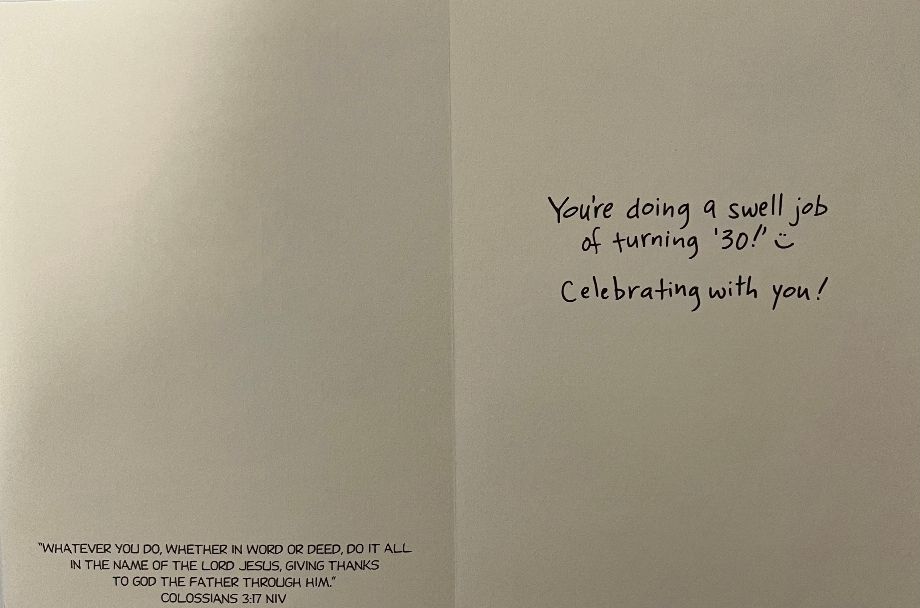 "WHATEVER YOU DO, WHETHER IN WORD OR DEED, DO IT ALL
IN THE NAME OF THE LORD JESUS, GIVING THANKS
TO GOD THE FATHER THROUGH HIM."
COLOSSIANS 3:17 NIV
You're doing a swell job
of turning '30!'
Celebrating with you!